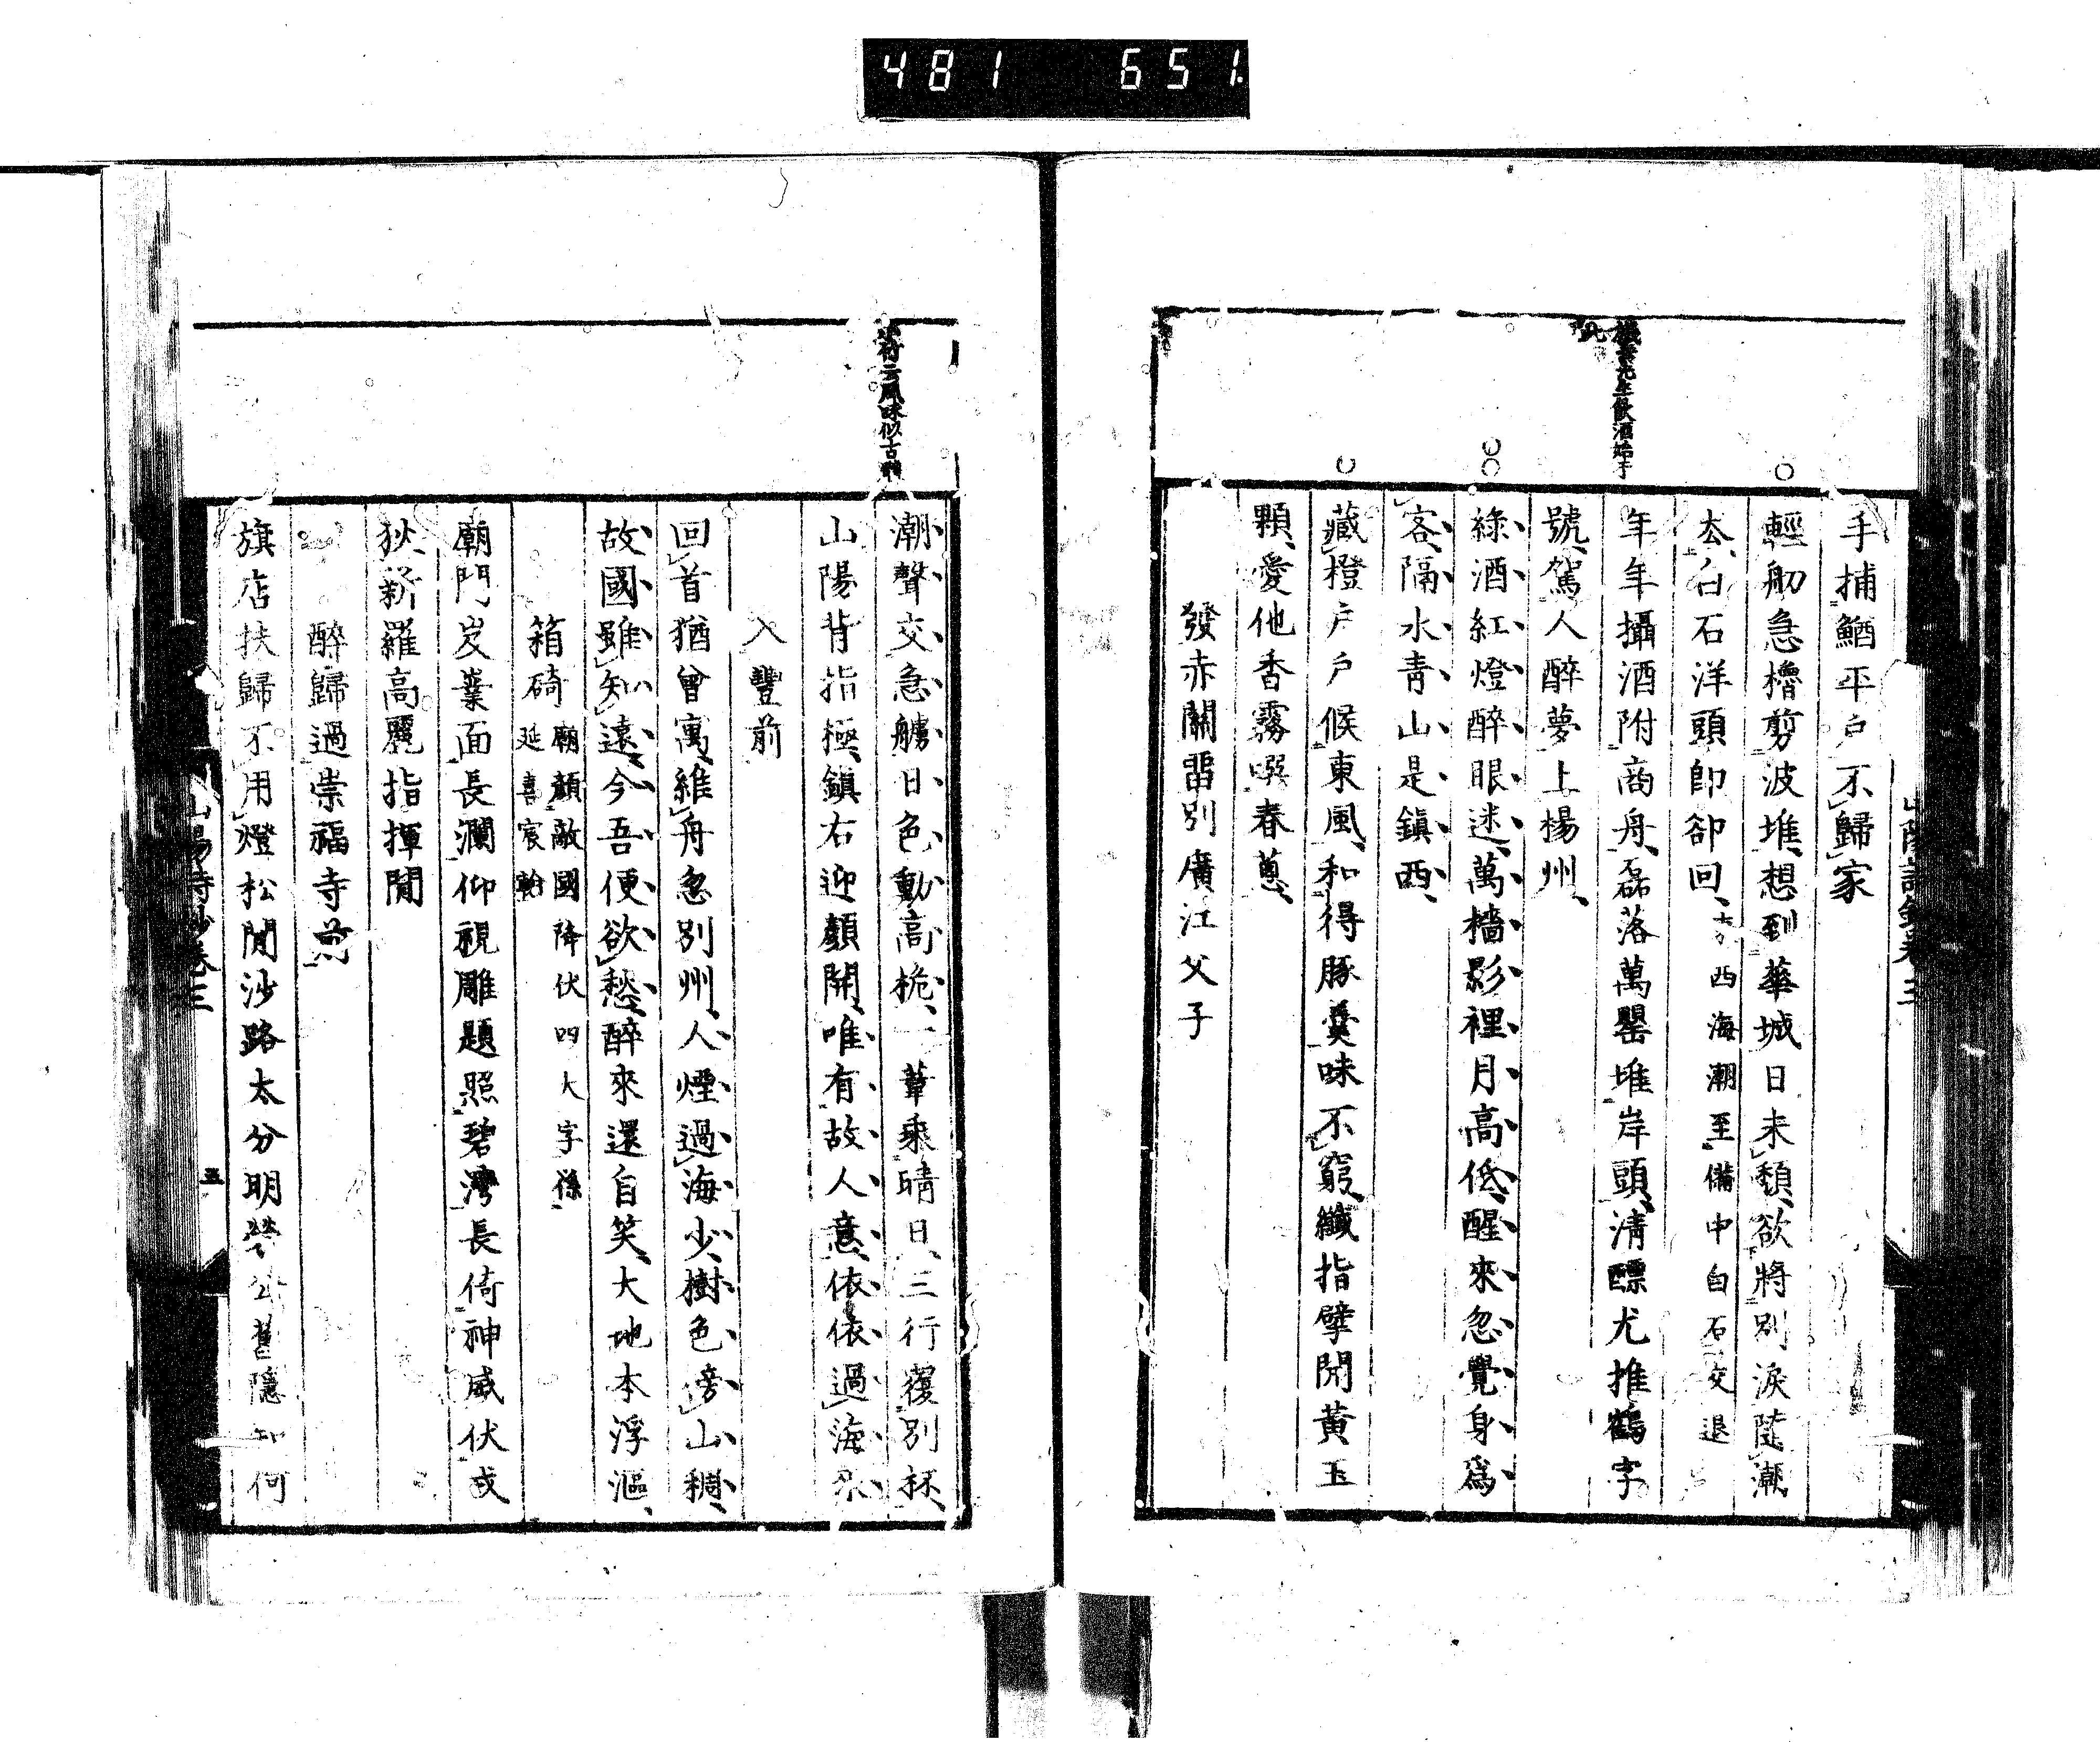 481 651
山陽詩鈔卷三
先生飲酒始于
手捕鰌平戶不歸家
輕舠急櫓剪波堆想到華城日未頹欲將別淚隨潮
去白石洋頭卽卻回 西海潮至備中白石交退
年年攝酒附商舟磊落萬罌堆岸頭清醥尤推鶴字
號駕人醉夢上楊州
綠酒紅燈醉眼迷萬檣影裡月高低醒來忽覺身爲
客隔水青山是鎮西
藏橙戶戶候東風和得豚羹味不窮纖指擘開黃玉
顆愛他香霧噀春蔥
發赤關畱別廣江父子
竹云風味似古
潮聲交急艣日色動高桅一葦乘晴日三行覆別杯
山陽背指極鎮右迎顏開唯有故人意依依過海
入豐前
回首猶曾寓維舟忽別州人煙過海少樹色傍山稠
故國雖知遠今吾便欲愁醉來還自笑大地本浮漚
箱碕 廟顏敵國降伏四大字係
延喜宸翰
廟門岌嶪面長瀾仰視雕題照碧灣長倚神威伏戎
狄新羅高麗指揮閒
醉歸過崇福寺前
旗店扶歸不用燈松閒沙路太分明 公舊隱知何
山陽詩鈔卷三
五